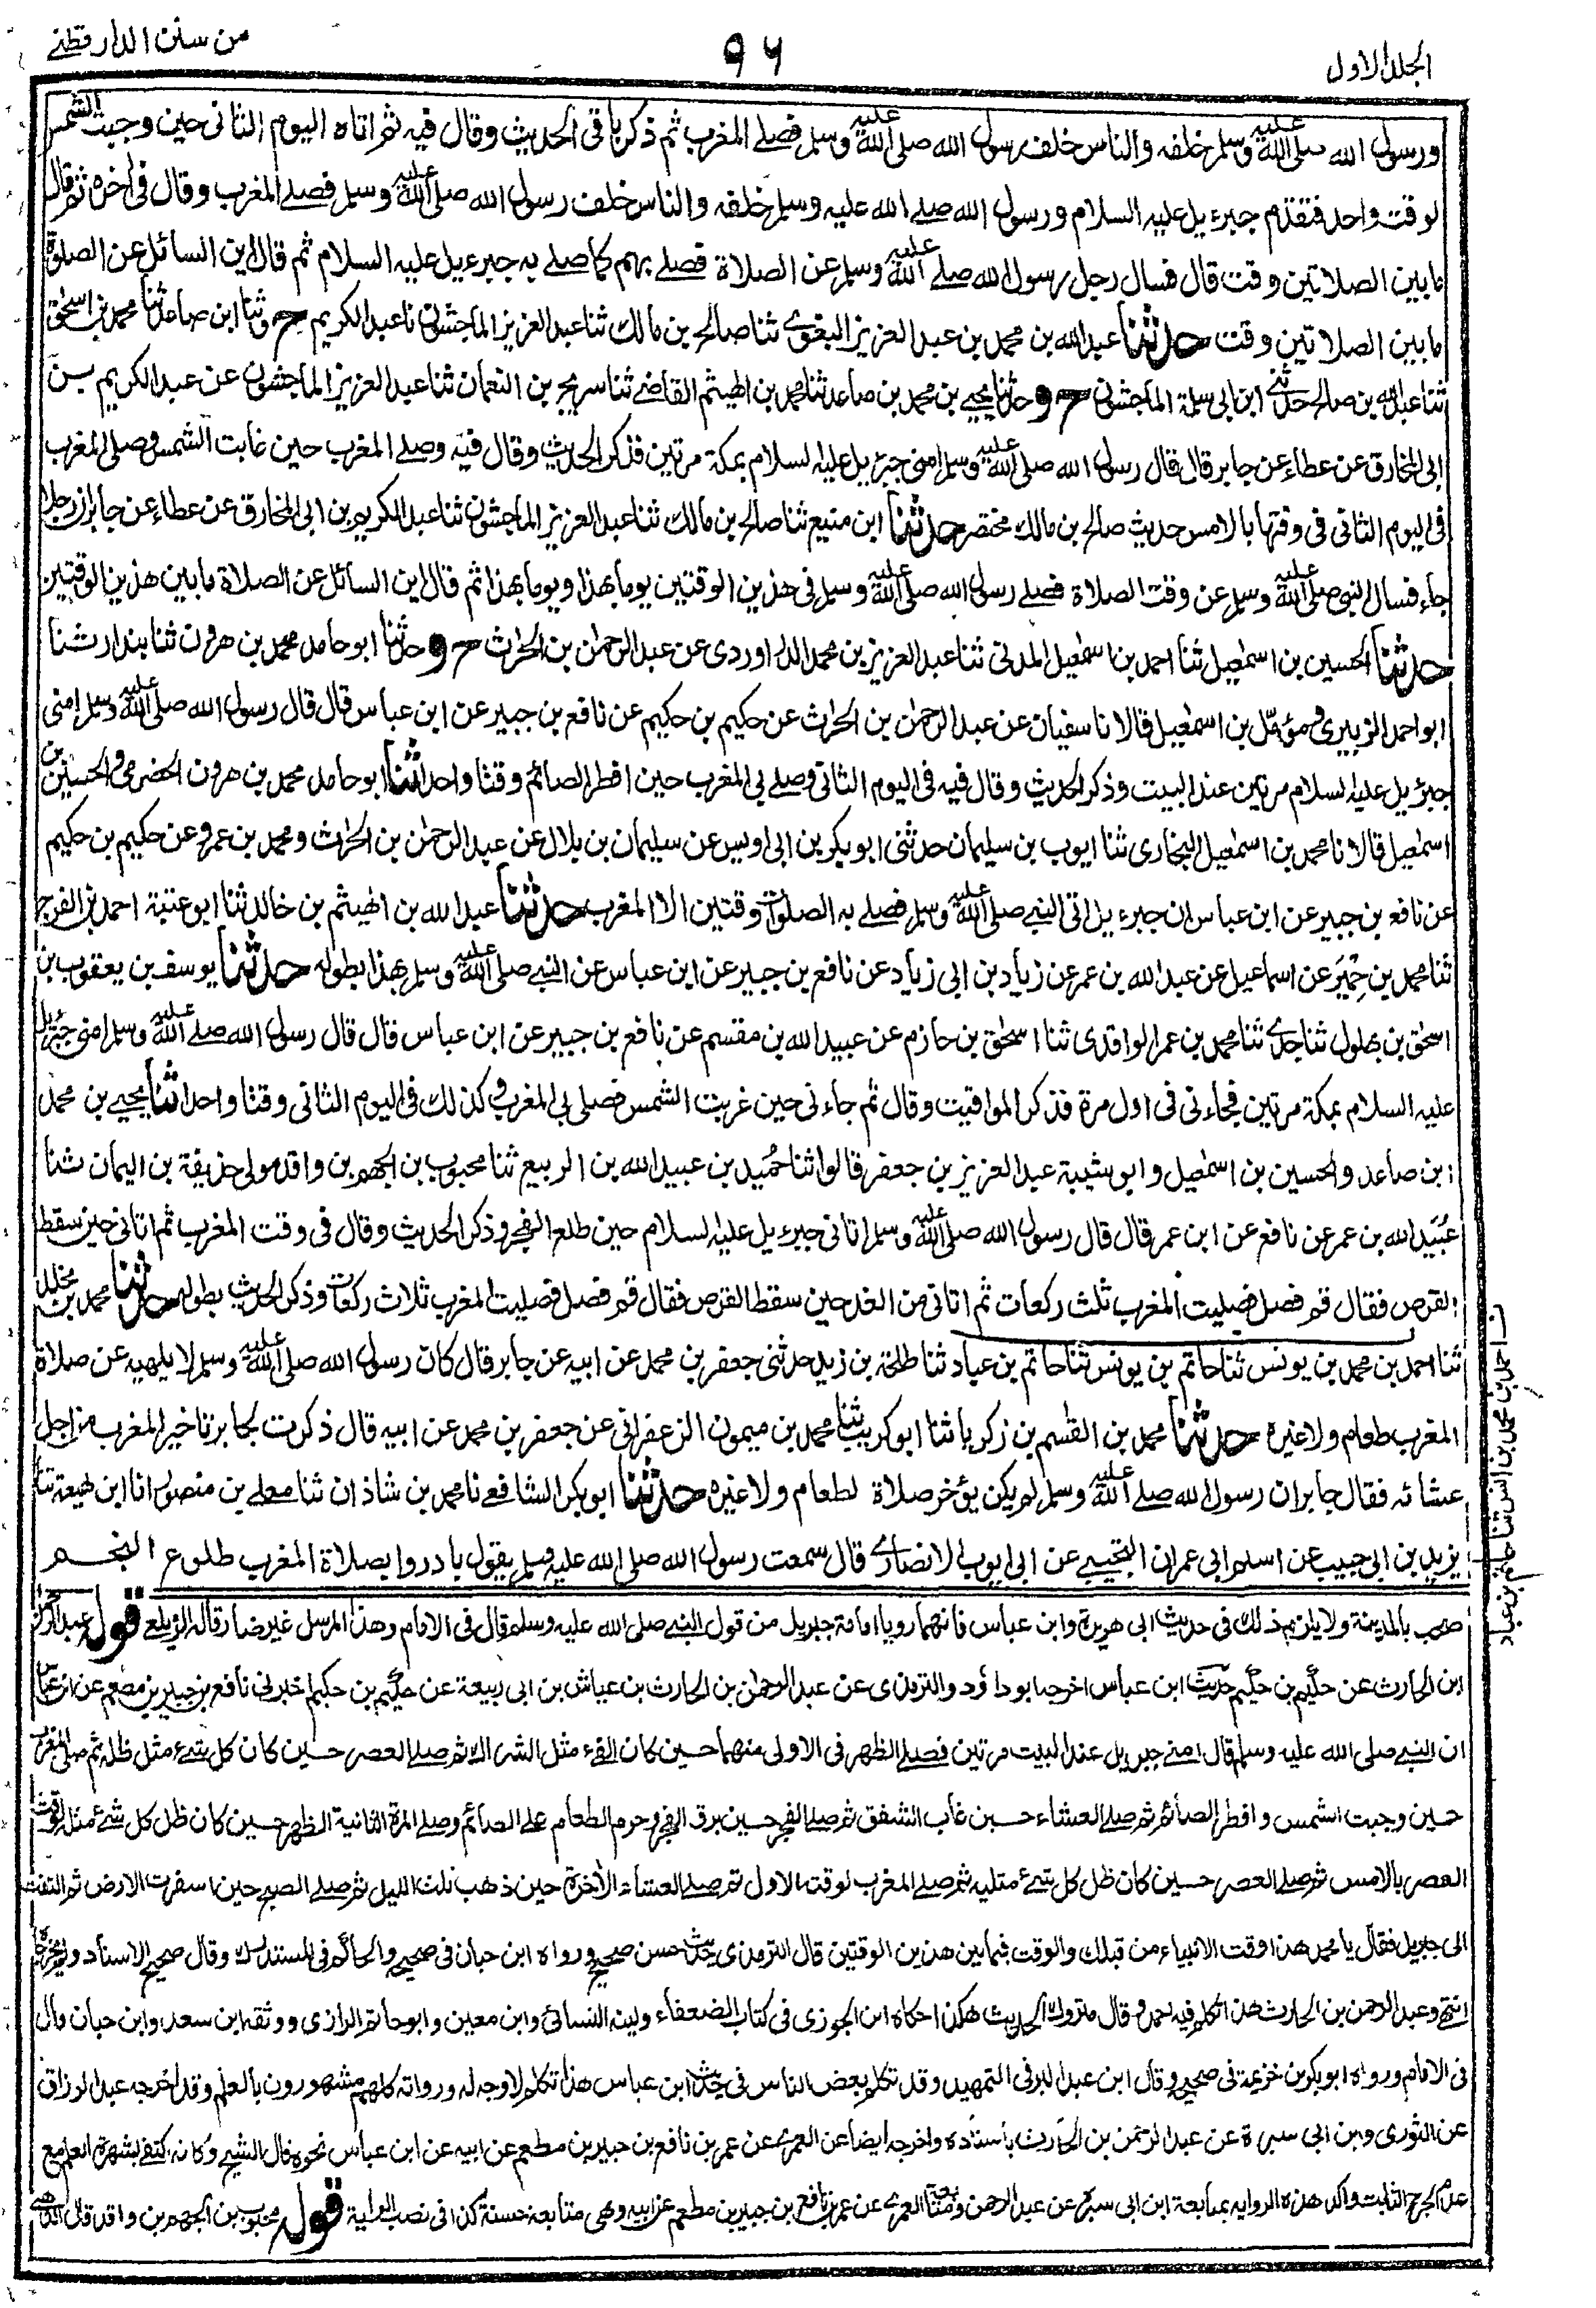 الجلد الاول
٩٦
من سنن الدارقطنے
ورسول الله صلى الله عليه وسلم خلفه والناس خلف رسول الله صلى الله عليه وسلم فصلے المغرب ثم ذكر باقى الحديث وقال فيه ثم اتاه اليوم الثانى حين وجبت الشمس
لوقت واحد فتقدم جبرءيل عليه السلام ورسول الله صلے الله عليه وسلم خلفه والناس خلف رسول الله صلى الله عليه وسلم فصلے المغرب وقال فى اخره ثم قال
ما بين الصلاتين وقت قال فسال رجل رسول الله صلے الله عليه وسلم عن الصلاة فصلے بهم كما صلے به جبرءيل عليه السلام ثم قال اين السائل عن الصلوة
ما بين الصلاتين وقت حدثنا عبد الله بن محمد بن عبد العزيز البغوے ثنا صالح بن مالك ثنا عبد العزيز الماجشون نا عبد الكريم ح وثنا ابن صاعد ثنا محمد بن اسحٰق
ثنا عبد الله بن صالح حدثنے ابن ابى سلمة الماجشون ح وحدثنا يحيے بن محمد بن صاعد ثنا محمد بن الهيثم القاضے ثنا سريج بن النعمان ثنا عبد العزيز الماجشون عن عبد الكريم بن
ابى المخارق عن عطاء عن جابر قال قال رسول الله صلى الله عليه وسلم امنى جبرءيل عليه السلام بمكة مرتين فذكر الحديث وقال فيه وصلے المغرب حين غابت الشمس وصلى المغرب
فى اليوم الثانى فى وقتها بالامس حديث صالح بن مالك مختصر حدثنا ابن منيع ثنا صالح بن مالك ثنا عبد العزيز الماجشون ثنا عبد الكريم بن ابى المخارق عن عطاء عن جابر ان رجلا
جاء فسال النبى صلى الله عليه وسلم عن وقت الصلاة فصلے رسول الله صلى الله عليه وسلم فى هذين الوقتين يوما بهذا ويوما بهذا ثم قال اين السائل عن الصلاة ما بين هذين الوقتين
حدثنا الحسين بن اسمٰعيل ثنا احمد بن اسمٰعيل المدنى ثنا عبد العزيز بن محمد الدراوردى عن عبد الرحمٰن بن الحٰرث ح وحدثنا ابو حامد محمد بن هرون ثنا بندار ثنا
ابو احمد الزبيرى ومؤمّل بن اسمٰعيل قالا نا سفيان عن عبد الرحمٰن بن الحٰرث عن حكيم بن حكيم عن نافع بن جبير عن ابن عباس قال قال رسول الله صلى الله عليه وسلم امنى
جبرءيل عليه السلام مرتين عند البيت وذكر الحديث وقال فيه فى اليوم الثانى وصلے بى المغرب حين افطر الصائم وقتا واحدا ثنا ابو حامد محمد بن هرون الحضرمى والحسين بن
اسمٰعيل قالا نا محمد بن اسمٰعيل البخارى ثنا ايوب بن سليمان حدثنى ابو بكر بن ابى اويس عن سليمان بن بلال عن عبد الرحمٰن بن الحٰرث ومحمد بن عمرو عن حكيم بن حكيم
عن نافع بن جبير عن ابن عباس ان جبرءيل اتى النبے صلى الله عليه وسلم فصلے به الصلوات وقتين الا المغرب حدثنا عبد الله بن الهيثم بن خالد ثنا ابو عتبة احمد بن الفرج
ثنا محمد بن حِمْيَر عن اسماعيل عن عبد الله بن عمر عن زياد بن ابى زياد عن نافع بن جبير عن ابن عباس عن النبے صلى الله عليه وسلم بهذا بطوله حدثنا يوسف بن يعقوب بن
اسحٰق بن بهلول ثنا جدے ثنا محمد بن عمر الواقدى ثنا اسحٰق بن حازم عن عبيد الله بن مقسم عن نافع بن جبير عن ابن عباس قال قال رسول الله صلے الله عليه وسلم امنى جبرءيل
عليه السلام بمكة مرتين فجاءنى فى اول مرة فذكر المواقيت وقال ثم جاءنى حين غربت الشمس فصلى بى المغرب وكذلك فى اليوم الثانى وقتا واحدا ثنا يحيے بن محمد
ابن صاعد والحسين بن اسمٰعيل وابو شيبة عبد العزيز بن جعفر قالوا ثنا حُميد بن عبيد الله بن الربيع ثنا محبوب بن الجهم بن واقد مولى حذيفة بن اليمان ثنا
عُبَيد الله بن عمر عن نافع عن ابن عمر قال قال رسول الله صلى الله عليه وسلم اتانى جبرءيل عليه السلام حين طلع الفجر وذكر الحديث وقال فى وقت المغرب ثم اتانى حين سقط
القرص فقال قم فصل فصليت المغرب ثلث ركعات ثم اتانى من الغد حين سقط القرص فقال قم فصل فصليت المغرب ثلاث ركعات وذكر الحديث بطوله حدثنا محمد بن مخلد
ثنا احمد بن محمد بن يونس ثنا حاتم بن يونس ثنا حاتم بن عباد ثنا طلحة بن زيد حدثنى جعفر بن محمد عن ابيه عن جابر قال كان رسول الله صلى الله عليه وسلم لا يلهيه عن صلاة
المغرب طعام ولا غيره حدثنا محمد بن القٰسم بن زكريا ثنا ابو كريب ثنا محمد بن ميمون الزعفرانى عن جعفر بن محمد عن ابيه قال ذكرت لجابر تاخير المغرب من اجل
عشائه فقال جابر ان رسول الله صلے الله عليه وسلم لم يكن يؤخر صلاة لطعام ولا غيره حدثنا ابو بكر الشافعے نا محمد بن شاذان ثنا معلے بن منصور انا ابن لهيعة ثنا
يزيد بن ابى حبيب عن اسلم ابى عمران التجيبے عن ابى ايوب الانصارے قال سمعت رسول الله صلى الله عليه وسلم يقول بادروا بصلاة المغرب طلوع النجم
احمد بن محمد بن انس ثنا حاتم بن عباد
صحب بالمدينة ولا يلزم ذلك فى حديث ابى هريرة وابن عباس فانهما رويا امامة جبريل من قول النبے صلى الله عليه وسلم قال فى الامام وهذا المرسل غير ضار قاله الزيلعے قوله عبد الرحمٰن
ابن الحارث عن حكيم بن حكيم حديث ابن عباس اخرجه ابو داؤد والترمذى عن عبد الرحمٰن بن الحارث بن عياش بن ابى ربيعة عن حكيم بن حكيم اخبرنى نافع بن جبير بن مطعم عن ابن عباس
ان النبے صلى الله عليه وسلم قال امنے جبريل عند البيت مرتين فصلے الظهر فى الاولى منهما حين كان الفئ مثل الشراك ثم صلے العصر حين كان كل شئ مثل ظله ثم صلى المغرب
حين وجبت الشمس وافطر الصائم ثم صلے العشاء حين غاب الشفق ثم صلے الفجر حين برق الفجر وحرم الطعام على الصائم وصلے المرة الثانية الظهر حين كان ظل كل شئ مثله لوقت
العصر بالامس ثم صلے العصر حين كان ظل كل شئ مثليه ثم صلے المغرب لوقته الاول ثم صلے العشاء الآخرة حين ذهب ثلث الليل ثم صلے الصبح حين اسفرت الارض ثم التفت
الى جبريل فقال يا محمد هذا وقت الانبياء من قبلك والوقت فيما بين هذين الوقتين قال الترمذى حديث حسن صحيح ورواه ابن حبان فى صحيحه والحاكم فى المستدرك وقال صحيح الاسناد ولم يخرجاه
انتهے وعبد الرحمن بن الحارث هذا تكلم فيه احمد وقال متروك الحديث هكذا حكاه ابن الجوزى فى كتاب الضعفاء ولينه النسائى وابن معين وابو حاتم الرازى ووثقه ابن سعد وابن حبان قال
فى الامام ورواه ابو بكر بن خزيمة فى صحيحه وقال ابن عبد البر فى التمهيد وقد تكلم بعض الناس فى حديث ابن عباس هذا بكلام لا وجه له ورواته كلهم مشهورون بالعلم وقد اخرجه عبد الرزاق
عن الثورى وابن ابى سبرة عن عبد الرحمٰن بن الحارث باسناده واخرجه ايضا عن العمرے عن عمر بن نافع بن جبير بن مطعم عن ابيه عن ابن عباس نحوه قال الشيخ وكانه اكتفے بشهرة العلم مع
عدم الجرح الثابت واكد هذه الرواية بمتابعة ابن ابى سبرة عن عبد الرحمن ومتابعة العمرے عن عمر بن نافع بن جبير بن مطعم عن ابيه وهى متابعة حسنة كذا فى نصب الراية قوله محبوب بن الجهم بن واقد قال